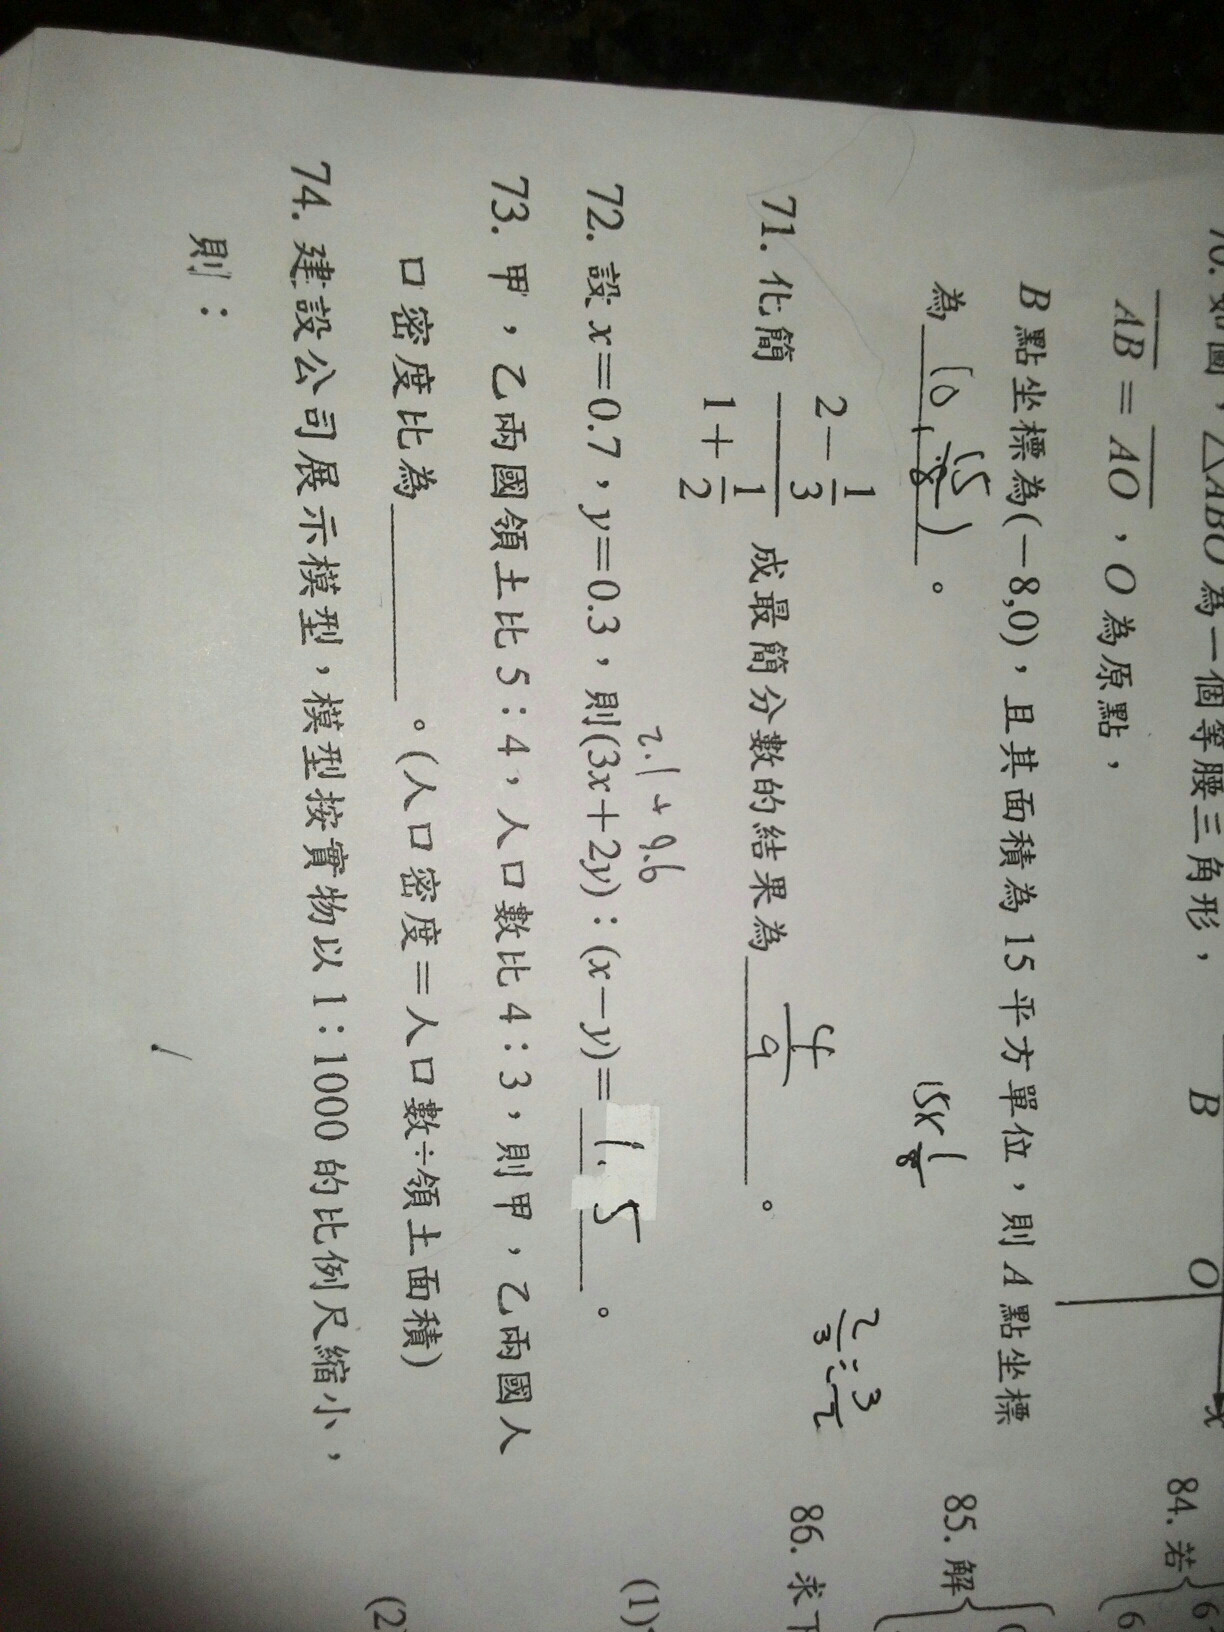 70. 如圖，△ABO 為一個等腰三角形，
AB = AO，O 為原點，
B 點坐標為(−8,0)，且其面積為 15 平方單位，則 A 點坐標
為
15×1/8
71. 化簡 (2−1/3)/(1+1/2) 成最簡分數的結果為 4/9 。
2/3 : 3/2
2.1 + 9.6
72. 設 x=0.7，y=0.3，則(3x+2y)：(x−y)= 1.5 。
73. 甲，乙兩國領土比 5：4，人口數比 4：3，則甲，乙兩國人
口密度比為 。(人口密度＝人口數÷領土面積)
74. 建設公司展示模型，模型按實物以 1：1000 的比例尺縮小，
則：
B O x
84. 若
85. 解
86. 求
(1)
(2